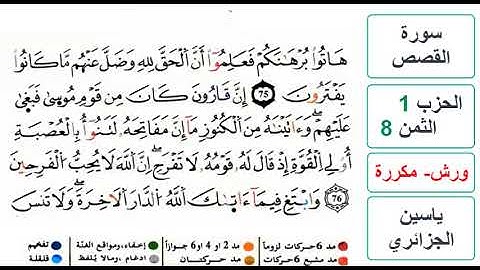 سورة
القصص
الحزب 1
الثمن 8
ورش- مكررة
ياسين
الجزائري
هَاتُوا۟ بُرْهَٰنَكُمْ فَعَلِمُوٓا۟ أَنَّ ٱلْحَقَّ لِلهِ وَضَلَّ عَنْهُم مَّا كَانُوا۟
يَفْتَرُونَ 75 إِنَّ قَٰرُونَ كَانَ مِن قَوْمِ مُوسَىٰ فَبَغَىٰ
عَلَيْهِمْ وَءَاتَيْنَٰهُ مِنَ ٱلْكُنُوزِ مَآ إِنَّ مَفَاتِحَهُۥ لَتَنُوٓأُ بِالْعُصْبَةِ
أُو۟لِے اِ۬لْقُوَّةِ إِذْ قَالَ لَهُۥ قَوْمُهُۥ لَا تَفْرَحِ اِنَّ ٱللَّهَ لَا يُحِبُّ ٱلْفَرِحِينَ
76 وَابْتَغِ فِيمَآ ءَاتَىٰكَ ٱللَّهُ ٱلدَّارَ ٱلَاخِرَةَ وَلَا تَنسَ
مد 6 حركات لزوماً
مد 2 او 4 او 6 جوازاً
إخفاء، ومواقع الغنة
تفخيم
مد مشبع 6 حركات
مد حركتان
ادغام، ومالا يُلفظ
قلقلة